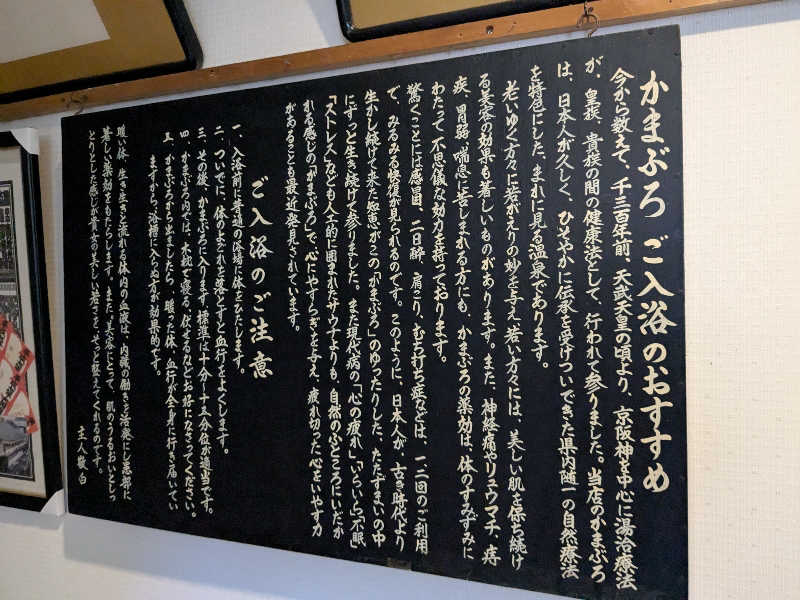 かまぶろ ご入浴のおすすめ
今から数えて、千三百年前、天武天皇の頃より、京阪神を中心に湯治療法
が、皇族、貴族の間の健康法として、行われて参りました。当店のかまぶろ
は、日本人が久しく、ひそやかに伝承を受けついできた県内随一の自然療法
を特色にした、まれに見る温泉であります。
老いゆく方々に若がえりの妙を与え、若い方々には、美しい肌を保ち続け
る美容の効果も著しいものがあります。また、神経痛やリュウマチ、痔
疾、胃弱、喘息に苦しまれる方にも、かまぶろの薬効は、体のすみずみに
わたって、不思議な効力を持っております。
驚くことには感冒、二日酔、肩こり、むち打ち症などは、一二回のご利用
で、みるみる快復が見られるのです。このように、日本人が、古き時代より
生かし続けて来た知恵がこの「かまぶろ」のゆったりした、たたずまいの中
にずっと生き続けて参りました。また現代病の「心の疲れ」「いらいら」「不眠」
「ストレス」なども人工的に囲まれたサウナよりも、自然のふところにいだか
れる感じの「かまぶろ」で、心にやすらぎを与え、疲れ切った心をいやす力
があることも最近発見されています。
ご入浴のご注意
一、入浴前に普通の浴場に体をひたします。
二、ついでに、体のよごれを落とすと血行をよくします。
三、その後、かまぶろに入ります。標準は十分〜十五分位が適当です。
四、かまぶろの内では、木枕で寝る、伏せるなどお好になさってください。
五、かまぶろから出ましたら、暖った体、血行が全身に行き届いてい
ますから、浴槽に入らぬ方が効果的です。
暖い体、生き生きと流れる体内の血液は、内臓の働きを活発にし患部に
著しい薬効をもたらします。また、美容にとって、肌のうるおいとしっ
とりとした感じが貴女の美しい若さを、そっと整えてくれるのです。
主人敬白